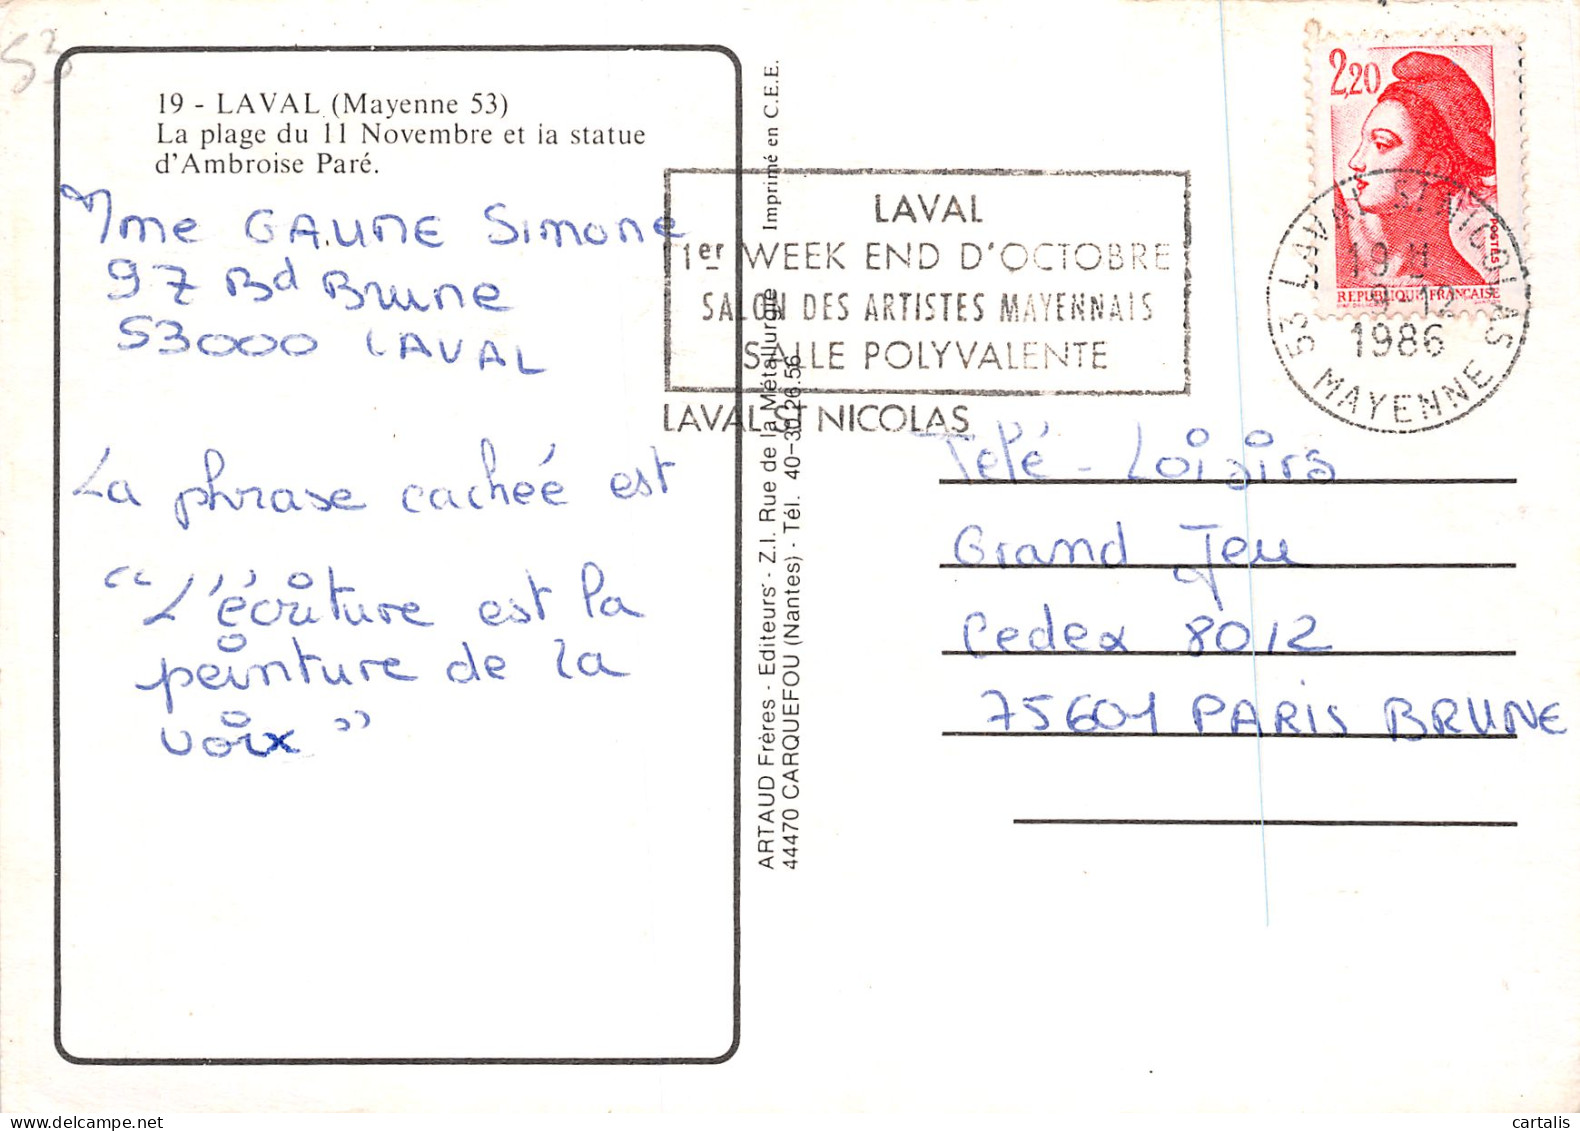 53
19 - LAVAL (Mayenne 53)
La plage du 11 Novembre et ia statue
d'Ambroise Paré.
Mme GAUNE Simone
97 Bd Brune
53000 LAVAL
La phrase cachée est
"L'écriture est la
peinture de la
voix"
Imprimé en C.E.E.
ARTAUD Frères - Editeurs - Z.I. Rue de la Métallurgie
44470 CARQUEFOU (Nantes) - Tél. 40-30.26.56
LAVAL
1er WEEK END D'OCTOBRE
SALON DES ARTISTES MAYENNAIS
SALLE POLYVALENTE
LAVAL ST NICOLAS
2,20
POSTES
REPUBLIQUE FRANÇAISE
53 LAVAL ST NICOLAS
19 H
9-12
1986
MAYENNE
Télé-Loisirs
Grand Jeu
Cedex 8012
75601 PARIS BRUNE
cartalis